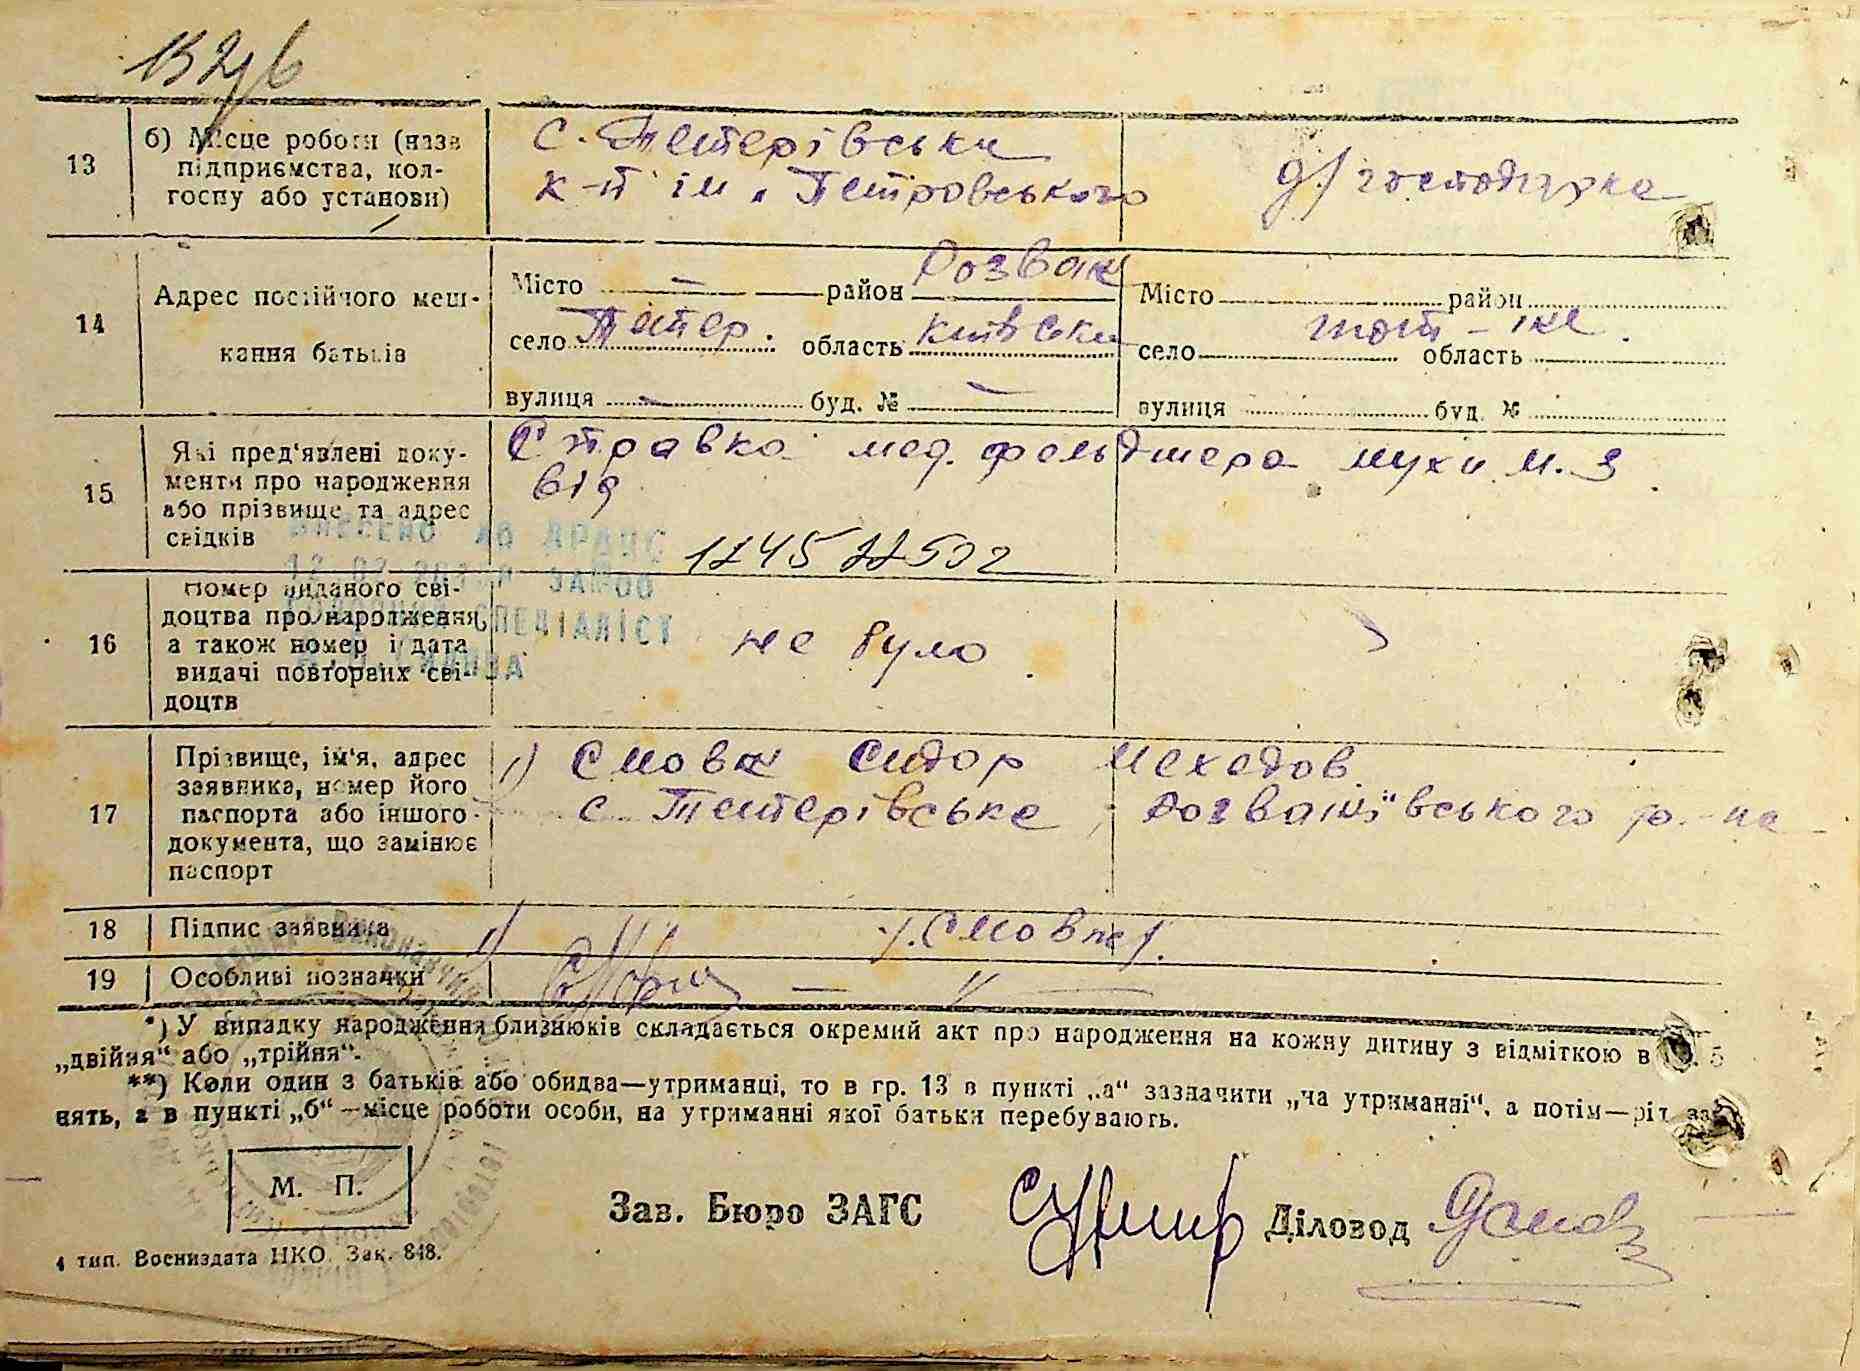 13 б) Місце роботи (назв підприємства, колгоспу або установи)
с. Тетерівська
к-п ім. Петровського
д/господарка
14 Адрес постійного мешкання батьків
Місто — район Розваж
село Тетер. область Київська
вулиця — буд. № —
Місто район
тот-же
село область
вулиця буд. №
15 Які пред'явлені документи про народження або прізвище та адрес свідків
Справка мед. фельдшера Мухи М. З
від
ВНЕСЕНО ДО ДРАЦС
16 Номер виданого свідоцтва про народження а також номер і дата видачі повторних свідоцтв
СПЕЦІАЛІСТ
не було
17 Прізвище, ім'я, адрес заявника, номер його паспорта або іншого документа, що замінює паспорт
1) Смовж Сидор Мехедов
с. Тетерівське, Розважівського р-на
18 Підпис заявника
1) /Смовж/.
19 Особливі позначки
*) У випадку народження близнюків складається окремий акт про народження на кожну дитину з відміткою в 5
„двійня“ або „трійня“.
**) Коли один з батьків або обидва—утриманці, то в гр. 13 в пункті „а“ зазначити „на утриманні“, а потім—рід за-
нять, а в пункті „б“—місце роботи особи, на утриманні якої батьки перебувають.
М. П.
Зав. Бюро ЗАГС
Діловод
4 тип. Воениздата НКО. Зак. 848.